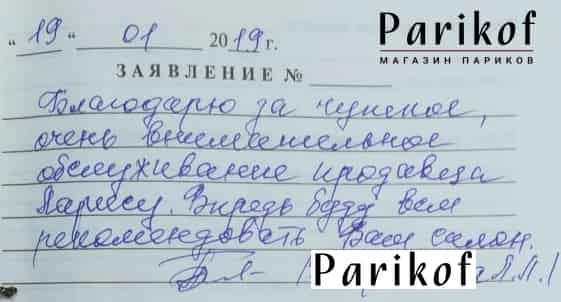 Parikof
МАГАЗИН ПАРИКОВ
"19" 01 2019 г.
ЗАЯВЛЕНИЕ №
Благодарю за чуткое,
очень внимательное
обслуживание продавца
Ларису. Впредь буду всем
рекомендовать Ваш салон.
Parikof
Л.Л.)